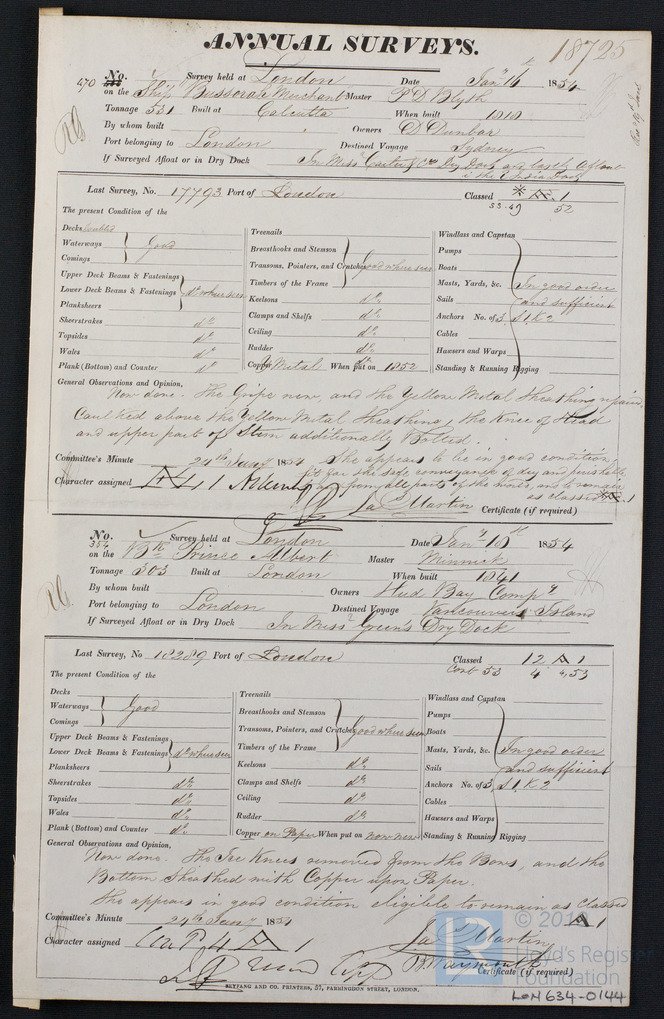 ANNUAL SURVEYS.
18725
470 No. Survey held at London Date Jany 16 1854
on the Ship Bussorah Merchant Master P D Blyth
Tonnage 531 Built at Calcutta When built 1818
By whom built Owners D Dunbar
Port belonging to London Destined Voyage Sydney
If Surveyed Afloat or in Dry Dock In Messrs Dry Dock and lastly Afloat
in the India Dock
Last Survey, No. 17793 Port of London Classed Æ 1
33.49 52
The present Condition of the
Decks doubled
Waterways
Comings
Good
Upper Deck Beams & Fastenings
Lower Deck Beams & Fastenings
Planksheers
do where seen
Sheerstrakes do
Topsides do
Wales do
Plank (Bottom) and Counter do
Treenails
Breasthooks and Stemson
Transoms, Pointers, and Crutches
Timbers of the Frame
Good where seen
Keelsons do
Clamps and Shelfs do
Ceiling do
Rudder do
Copper Y Metal When put on 1852
Windlass and Capstan
Pumps
Boats
Masts, Yards, &c.
Sails
Anchors No. of 3, S1, K2
Cables
Hawsers and Warps
Standing & Running Rigging
In good order
and sufficient
General Observations and Opinion,
Now done. The Gripe new, and the Yellow Metal Sheathing repaired.
Caulked above the Yellow Metal Sheathing, the Knee of Head
and upper part of Stem additionally Bolted.
She appears to be in good condition,
fit for the safe conveyance of dry and perishable
from all parts of the world, and to remain
as classed Æ 1
Committee's Minute 24th Jany 1854
Character assigned Æ 1
Jas Martin
Certificate (if required)
No. 354 Survey held at London Date Jany 18th 1854
on the Bk Prince Albert Master
Tonnage 303 Built at London When built 1841
By whom built Owners Hud Bay Compy
Port belonging to London Destined Voyage Vancouvers Island
If Surveyed Afloat or in Dry Dock In Messrs Green's Dry Dock
Last Survey, No 18289 Port of London Classed 12 A 1
Cont 53 4 53
The present Condition of the
Decks
Waterways
Comings
Good
Upper Deck Beams & Fastenings
Lower Deck Beams & Fastenings
Planksheers
do where seen
Sheerstrakes do
Topsides do
Wales do
Plank (Bottom) and Counter do
Treenails
Breasthooks and Stemson
Transoms, Pointers, and Crutches
Timbers of the Frame
Good where seen
Keelsons do
Clamps and Shelfs do
Ceiling do
Rudder do
Copper on Paper When put on now new
Windlass and Capstan
Pumps
Boats
Masts, Yards, &c.
Sails
Anchors No. of 3, S1, K2
Cables
Hawsers and Warps
Standing & Running Rigging
In good order
and sufficient
General Observations and Opinion,
Now done. The Ice Knees removed from the Bows, and the
Bottom Sheathed with Copper upon Paper.
She appears in good condition eligible to remain as Classed
A 1
Committee's Minute 24th Jany 1854
Character assigned A 1
Jas Martin
B Waymouth
Certificate (if required)
SEYFANG AND CO. PRINTERS, 57, FARRINGDON STREET, LONDON.
Lloyd's Register
Foundation
LON634-0144